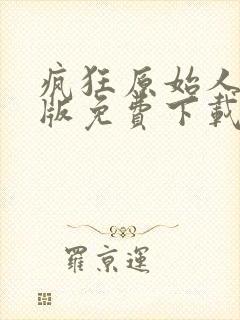 疯狂原始人
版免費下載
羅京運